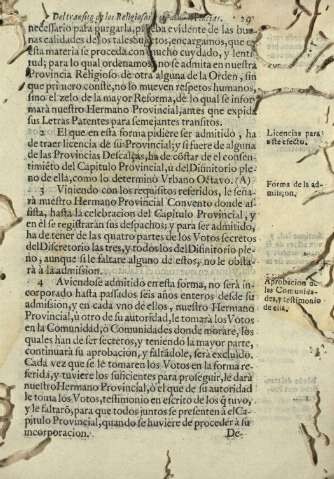 Del transito de los Religiosos 29
necessario para purgarla, prueba evidente de las bue
nas calidades de los tales sujetos, encargamos, que en
esta materia se proceda con mucho cuydado, y lenti
tud; para lo qual ordenamos no se admita en nuestra
Provincia Religioso de otra alguna de la Orden, sin
que primero conste, no lo mueven respetos humanos,
sino el zelo de la mayor Reforma, de lo qual se infor
marà nuestro Hermano Provincial, antes que expida
sus Letras Patentes para semejantes transitos.
El que en esta forma pidiere ser admitido, ha
de traer licencia de su Provincial; y si fuere de alguna
de las Provincias Descalças, ha de cõstar de el consen-
timiẽto del Capitulo Provincial, ù del Disinitorio ple
no de ella, como lo determinò Vrbano Octavo. (A)
Licencias para
este efecto.
3 Viniendo con los requisitos referidos, le seña
rà nuestro Hermano Provincial Convento donde as-
sista, hasta la celebracion del Capitulo Provincial, y
en èl se registraràn sus despachos; y para ser admitido,
ha de tener de las quatro partes de los Votos secretos
del Discretorio las tres, y todos los del Disinitorio ple-
no, aunque si le faltare alguno de estos, no le obsta-
rà à la admission.
Forma de la ad-
mission,
4 Aviendose admitido en esta forma, no serà in-
corporado hasta passados seis años enteros desde su
admission, y en cada vno de ellos, nuestro Hermano
Provincial, ù otro de su autoridad, le tomarà los Votos
en la Comunidad, ò Comunidades donde morare, los
quales han de ser secretos, y teniendo la mayor parte,
continuarà su aprobacion, y faltandole, serà excluido.
Cada vez que se le tomaren los Votos en la forma re-
ferida, y tuviere los suficientes para proseguir, le darà
nuestro Hermano Provincial, ò el que de su autoridad
le toma los Votos, testimonio en escrito de los q̃ tuvo,
y le faltarõ, para que todos juntos se presenten à el Ca-
pitulo Provincial, quando se huviere de proceder à su
incorporacion.
Aprobacion de
las Comunida-
des, y testimonio
de ella.
De-